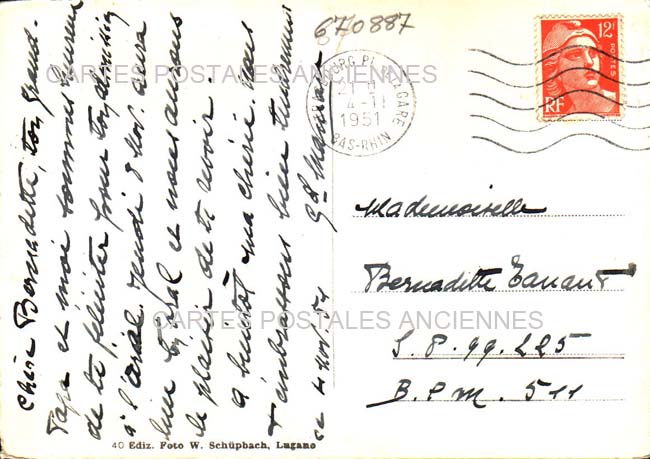 670887
CARTES POSTALES ANCIENNES
12F
POSTES
RF
PL. DE LA GARE
21 H
4-11
1951
BAS-RHIN
Chère Bernadette, ton grand-
Papa et moi sommes heureux
de te féliciter pour ton dessin
à l'oral. Jeudi 8 Nov. aura
lieu et nous aurons
le plaisir de te revoir.
à bientôt ma chérie. nous
t'embrassons bien tendrement
Gd Maman
ce 4 Nov. 51
Mademoiselle
Bernadette
S.P. 99.225
B.P.M. 511
CARTES POSTALES ANCIENNES
40 Ediz. Foto W. Schüpbach, Lugano